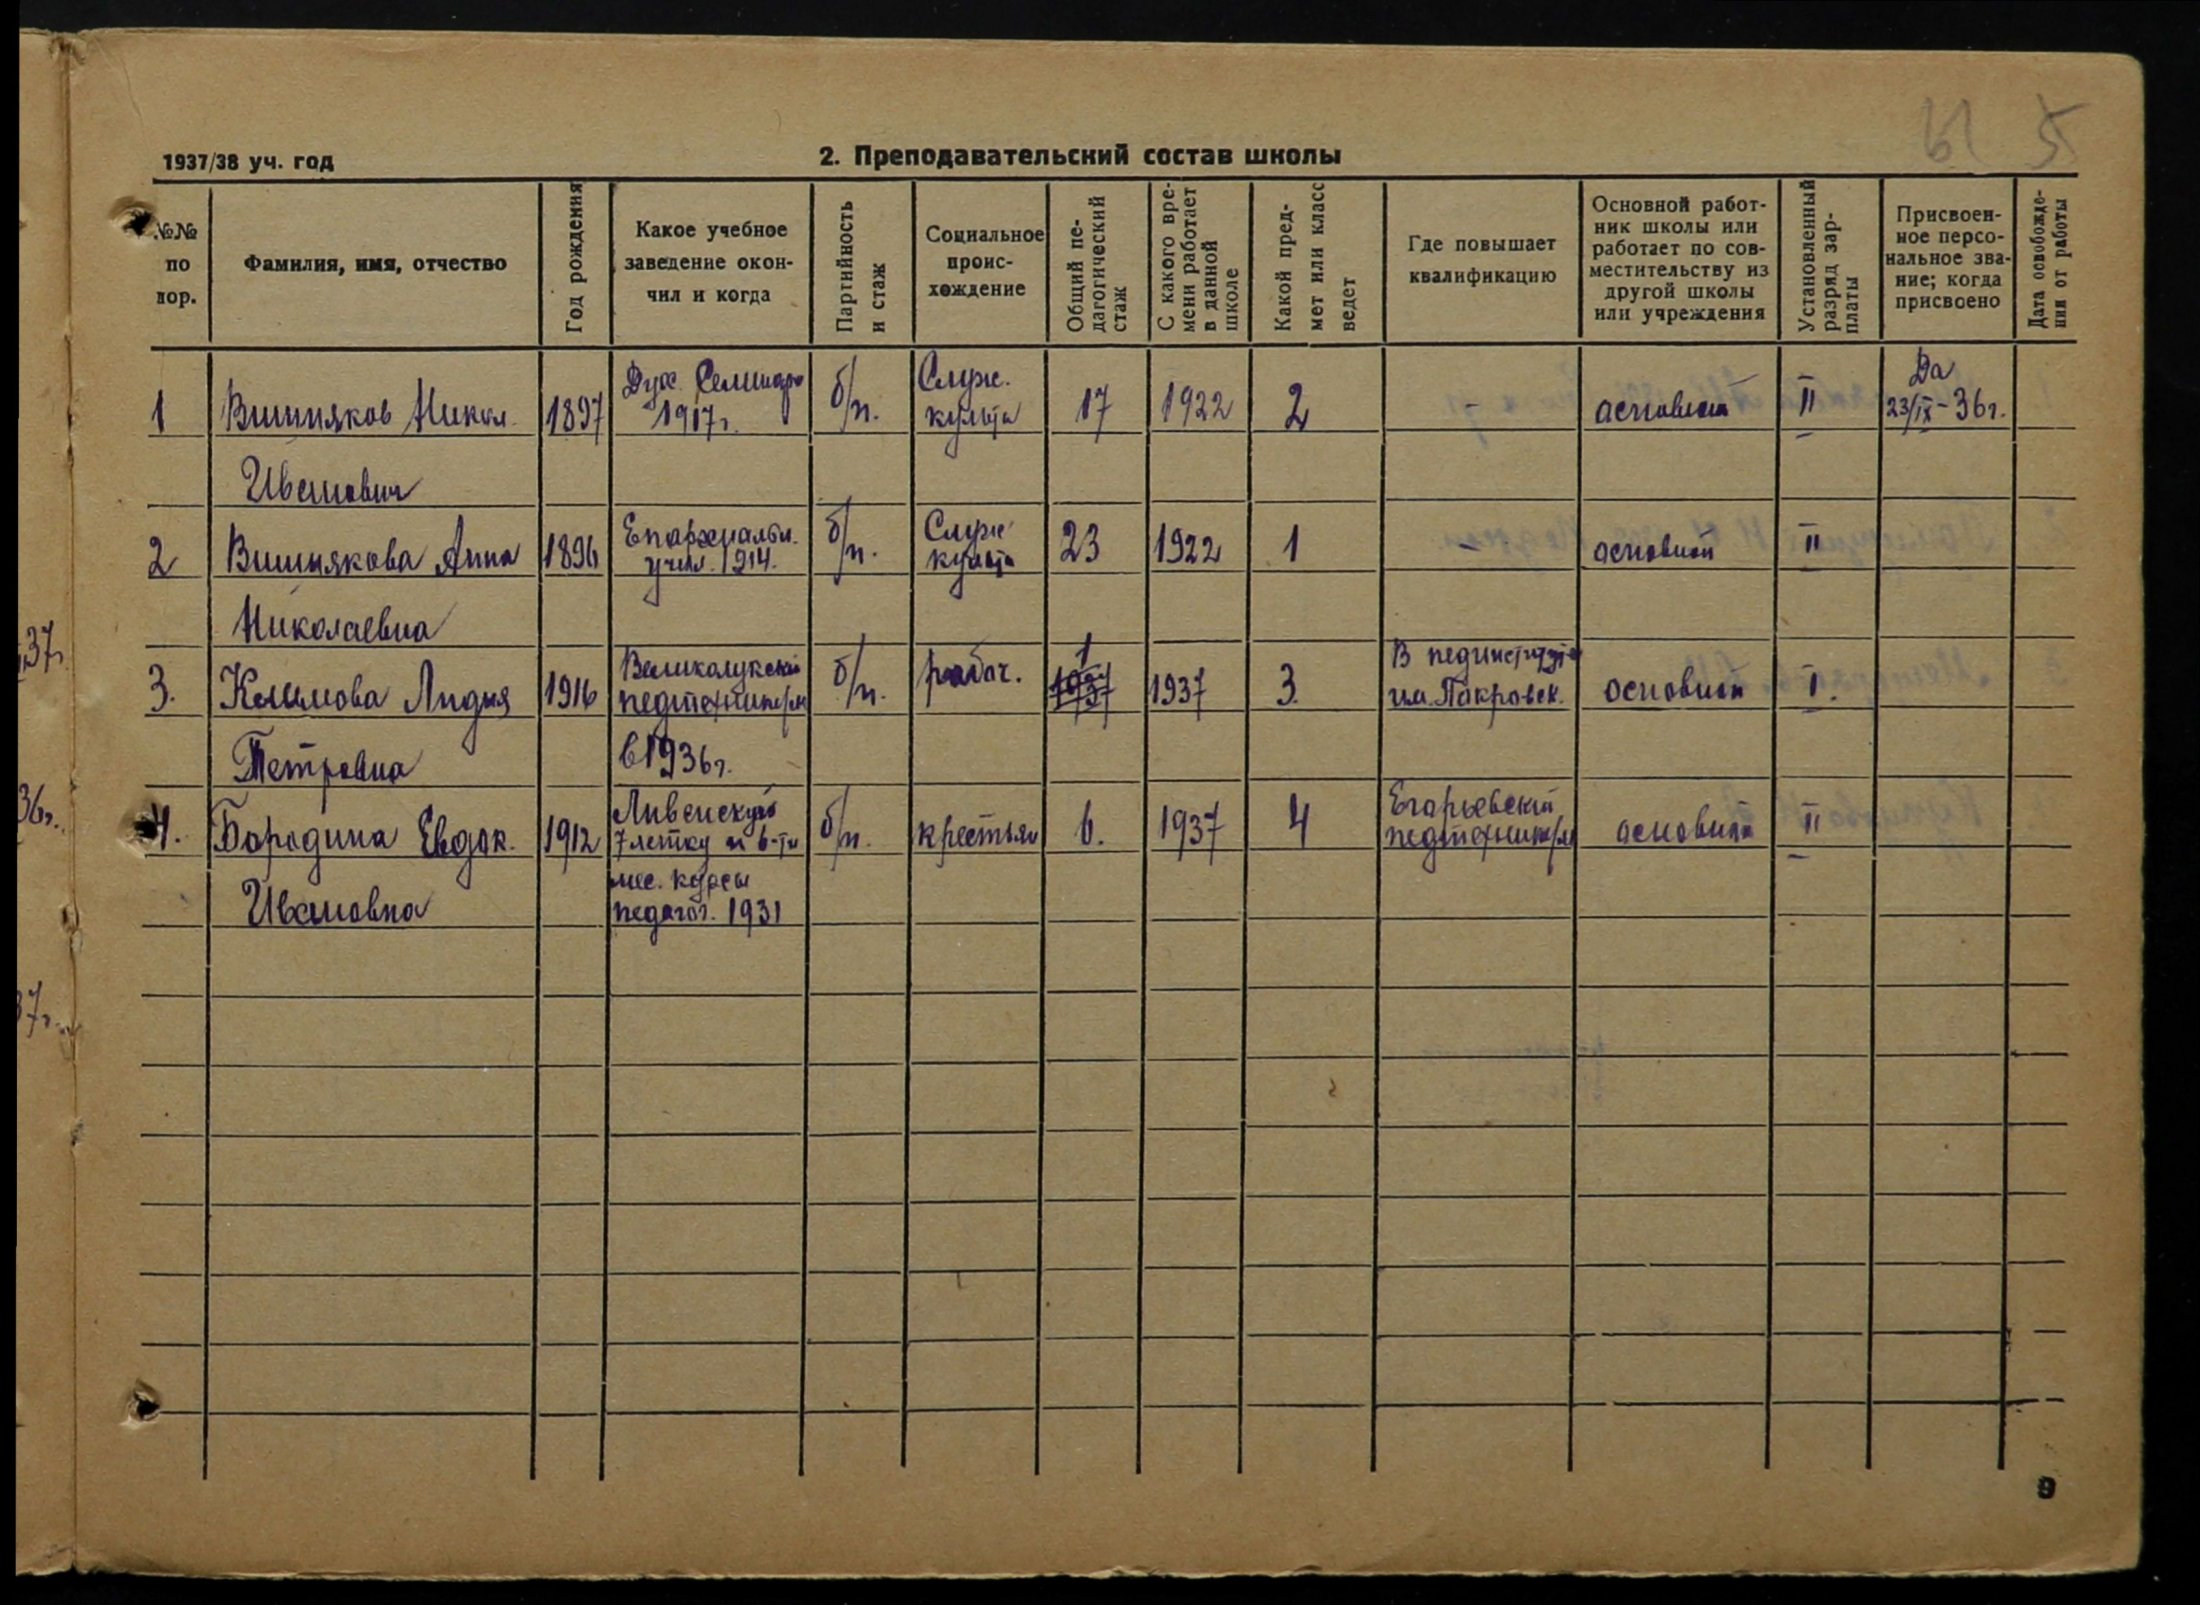 1937/38 уч. год
2. Преподавательский состав школы
№№ по пор.
Фамилия, имя, отчество
Год рождения
Какое учебное заведение окон-
чил и когда
Партийность и стаж
Социальное проис-
хождение
Общий пе-
дагогический стаж
С какого вре-
мени работает в данной школе
Какой пред-
мет или класс ведет
Где повышает квалификацию
Основной работ-
ник школы или работает по сов-
местительству из другой школы или учреждения
Установленный разряд зар-
платы
Присвоен-
ное персо-
нальное зва-
ние; когда присвоено
Дата освобожде-
ния от работы
1 Вишняков Никол. 1897 Дух. Семинар 1917г. б/п. Служ. культа 17 1922 2 - основной II Да 23/IX-36г.
Иванович
2 Вишнякова Анна 1896 Епархиальн. учил. 1914. б/п. Служ культа 23 1922 1 - основной II
Николаевна
3. Климова Лидия 1916 Великолукский педтехникум б/п. рабоч. 1 1937 1937 3. В пединституте им. Покровск. основной I.
Петровна в 1936г.
4. Бородина Евдок. 1912 Ливенскую 7 летку и 6-ти б/п. крестьян 6. 1937 4 Егорьевский педтехникум основной II
Ивановна мес. курсы педагог. 1931
37г.
36г.
37г.
9